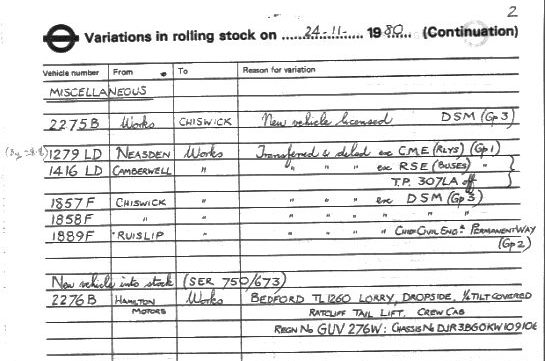 2
Variations in rolling stock on ...24-11-... 1980... (Continuation)
Vehicle number From To Reason for variation
MISCELLANEOUS
2275B Works CHISWICK New vehicle licensed DSM (Gp 3)
1279 LD NEASDEN Works Transferred & delicd exc CME (RLYS) (Gp 1)
1416 LD CAMBERWELL " " " " exc RSE (BUSES) "
T.P. 307LA off
1857F CHISWICK " " " " exc DSM (Gp 3)
1858F " " " " " " " "
1889F RUISLIP " " " " " CHIEF CIVIL ENG: PERMANENT WAY
(Gp 2)
New vehicle into stock (SER 750/673)
2276B HAMILTON Works BEDFORD TL1260 LORRY, DROPSIDE, TILT COVERED
MOTORS RATCLIFF TAIL LIFT, CREW CAB
REGN No GUV 276W: CHASSIS No DJR3BGOKW109106